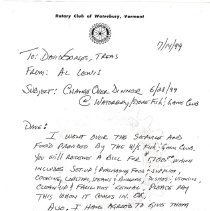 Rotary Club of Waterbury, Vermont
7/14/99
To: David Treas
From: Al Lewis
Subject: Change Over Dinner 6/28/99
@ Waterbury Fish & Game Club
Dave:
I went over the service and
food provided by the W/S Fish & Game Club.
You will receive a bill for which
includes set up, purchasing food & supplies,
cooking,
clean up & facilities rental. Please pay
this when it comes in.
Also, I have agreed to give them